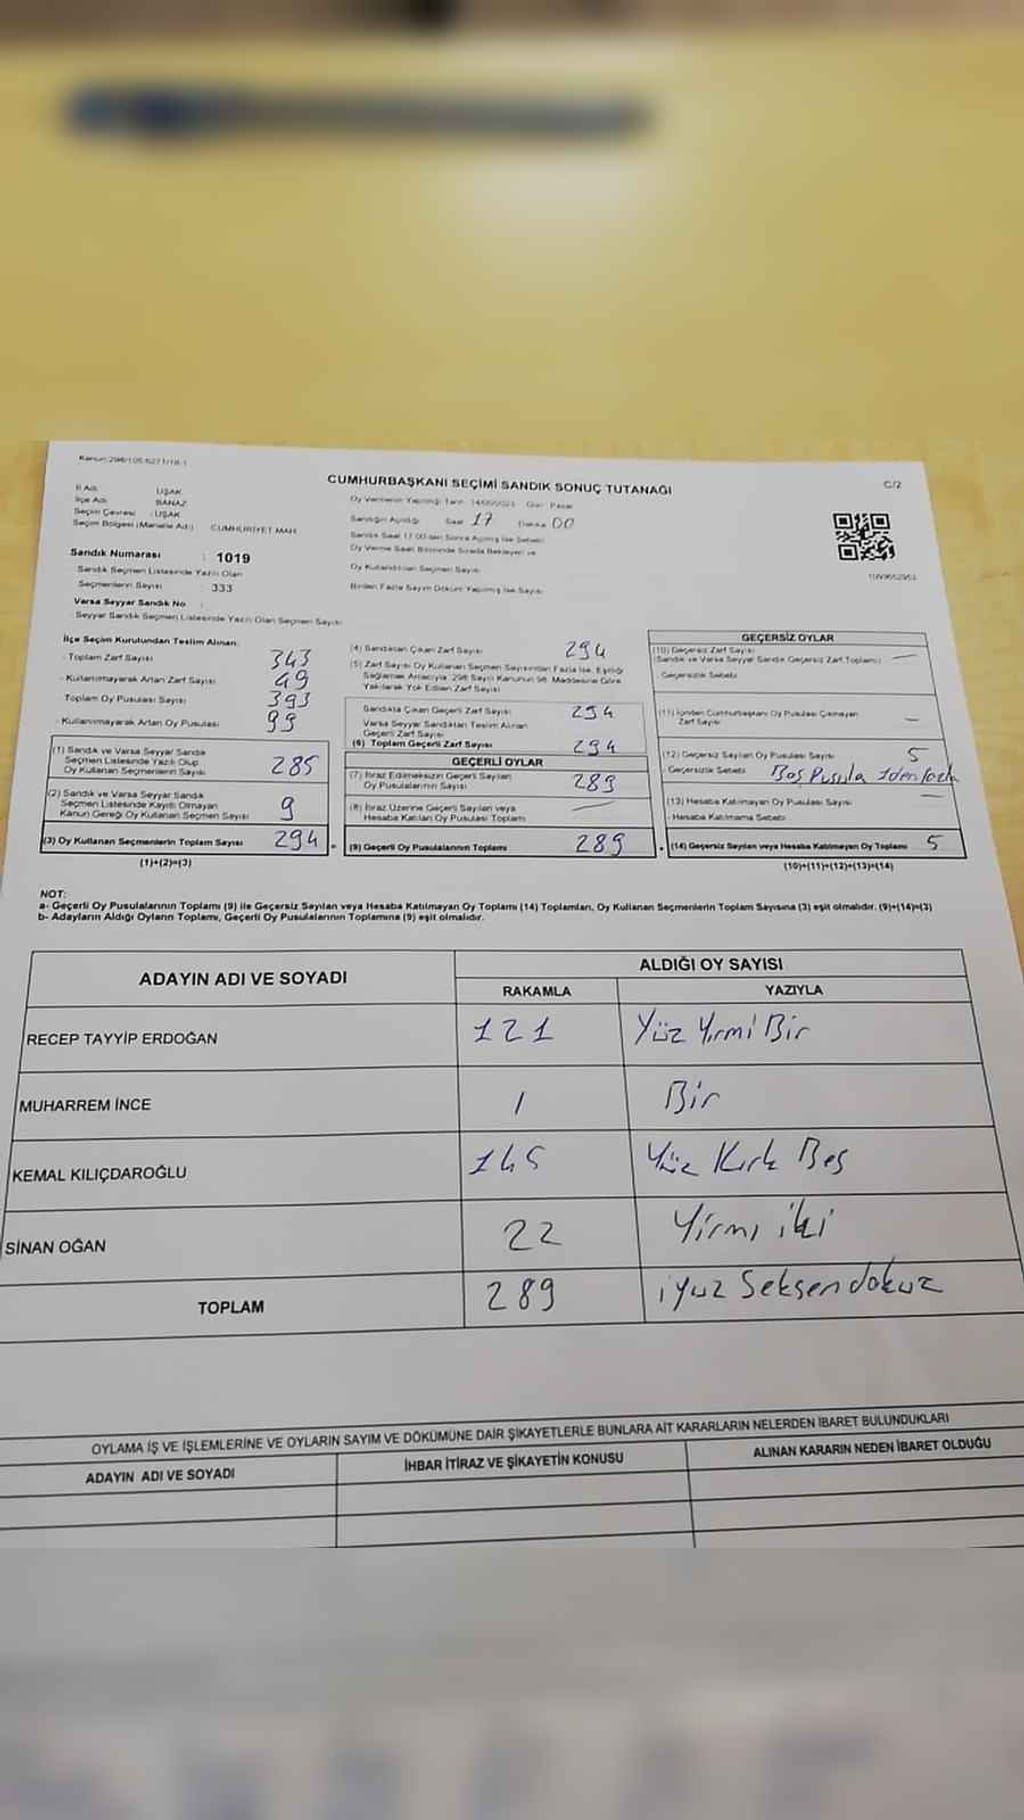 CUMHURBAŞKANI SEÇİMİ SANDIK SONUÇ TUTANAĞI
C/2
İl Adı UŞAK
İlçe Adı BANAZ
Seçim Çevresi : UŞAK
Seçim Bölgesi (Mahalle Adı) CUMHURİYET MAH.
Saat 17 Dakika 00
Sandık Numarası : 1019
Sandık Seçmen Listesinde Yazılı Olan
Seçmenlerin Sayısı : 333
Varsa Seyyar Sandık No :
Seyyar Sandık Seçmen Listesinde Yazılı Olan Seçmen Sayısı
Oy Kullandırılan Seçmen Sayısı
İlçe Seçim Kurulundan Teslim Alınan:
- Toplam Zarf Sayısı 343
- Kullanılmayarak Artan Zarf Sayısı 49
Toplam Oy Pusulası Sayısı 393
- Kullanılmayarak Artan Oy Pusulası 99
(1) Sandık ve Varsa Seyyar Sandık
Seçmen Listesinde Yazılı Olup
Oy Kullanan Seçmenlerin Sayısı 285
(2) Sandık ve Varsa Seyyar Sandık
Seçmen Listesinde Kayıtlı Olmayan
Kanun Gereği Oy Kullanan Seçmen Sayısı 9
(3) Oy Kullanan Seçmenlerin Toplam Sayısı 294
(1)+(2)=(3)
(4) Sandıktan Çıkan Zarf Sayısı 294
(5) Zarf Sayısı Oy Kullanan Seçmen Sayısından Fazla İse, Eşitliği
Sağlamak Amacıyla 298 Sayılı Kanunun 98. Maddesine Göre
Yakılarak Yok Edilen Zarf Sayısı
Sandıkta Çıkan Geçerli Zarf Sayısı 294
Varsa Seyyar Sandıktan Teslim Alınan
Geçerli Zarf Sayısı
(6) Toplam Geçerli Zarf Sayısı 294
GEÇERLİ OYLAR
(7) İtiraz Edilmeksizin Geçerli Sayılan
Oy Pusulalarının Sayısı 289
(8) İtiraz Üzerine Geçerli Sayılan veya
Hesaba Katılan Oy Pusulası Toplamı —
(9) Geçerli Oy Pusulalarının Toplamı 289
GEÇERSİZ OYLAR
(10) Geçersiz Zarf Sayısı —
(Sandık ve Varsa Seyyar Sandık Geçersiz Zarf Toplamı)
Geçersizlik Sebebi
(11) İçinden Cumhurbaşkanı Oy Pusulası Çıkmayan
Zarf Sayısı —
(12) Geçersiz Sayılan Oy Pusulası Sayısı 5
Geçersizlik Sebebi Boş Pusula 1den fazla
(13) Hesaba Katılmayan Oy Pusulası Sayısı —
- Hesaba Katılmama Sebebi
(14) Geçersiz Sayılan veya Hesaba Katılmayan Oy Toplamı 5
(10)+(11)+(12)+(13)=(14)
NOT:
a- Geçerli Oy Pusulalarının Toplamı (9) ile Geçersiz Sayılan veya Hesaba Katılmayan Oy Toplamı (14) Toplamları, Oy Kullanan Seçmenlerin Toplam Sayısına (3) eşit olmalıdır. (9)+(14)=(3)
b- Adayların Aldığı Oyların Toplamı, Geçerli Oy Pusulalarının Toplamına (9) eşit olmalıdır.
ADAYIN ADI VE SOYADI
ALDIĞI OY SAYISI
RAKAMLA YAZIYLA
RECEP TAYYİP ERDOĞAN 121 Yüz Yirmi Bir
MUHARREM İNCE 1 Bir
KEMAL KILIÇDAROĞLU 145 Yüz Kırk Beş
SİNAN OĞAN 22 Yirmi iki
TOPLAM 289 iyüz Seksen dokuz
OYLAMA İŞ VE İŞLEMLERİNE VE OYLARIN SAYIM VE DÖKÜMÜNE DAİR ŞİKAYETLERLE BUNLARA AİT KARARLARIN NELERDEN İBARET BULUNDUKLARI
ADAYIN ADI VE SOYADI İHBAR İTİRAZ VE ŞİKAYETİN KONUSU ALINAN KARARIN NEDEN İBARET OLDUĞU